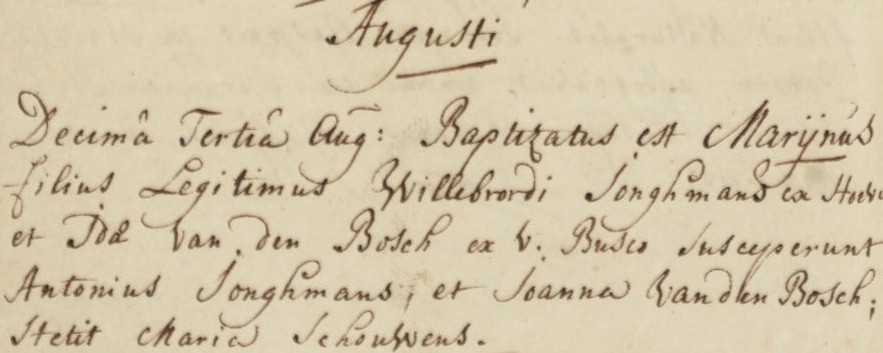 Augusti
Decimâ Tertiâ Aug: Baptizatus est Marijnus
filius Legitimus Willebrordi Jonghmans ex
et Idæ Van den Bosch ex v. Busco Susceperunt
Antonius Jonghmans, et Joanna Van den Bosch;
Stetit Maria Schouwens.